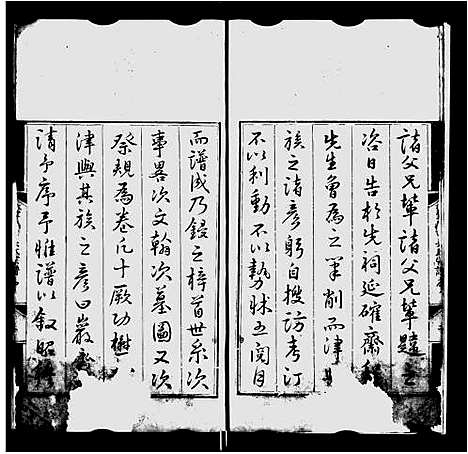 諸父兄輩諸父兄輩韙之
洛日告於先祠延確齋
先生魯為之筆削而津
族之諸彥躬自搜訪考訂
不以利動不以勢怵五閱月
而譜成乃鋟之梓首世系次
事畧次文翰次墓圖又次
祭規為卷凡十厥功樹
津與其族之彥曰巖
請予序予惟譜以敘昭